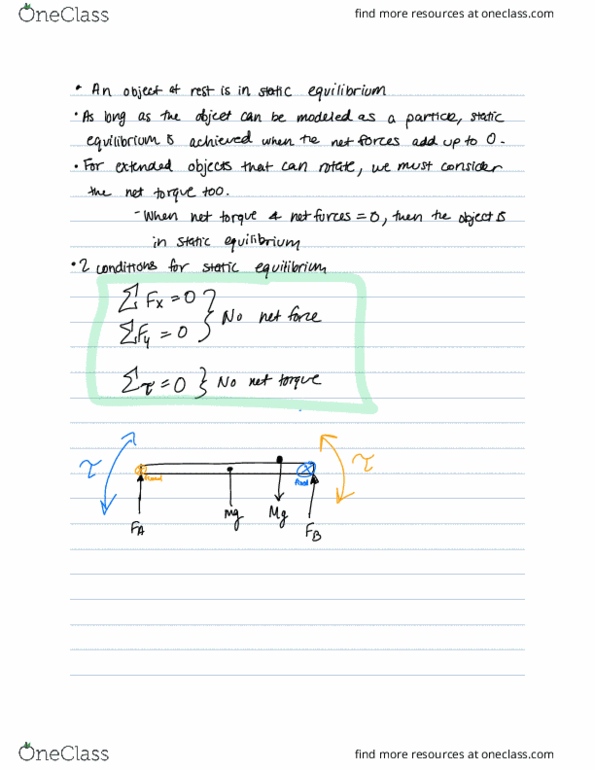 OneClass
find more resources at oneclass.com
• An object at rest is in static equilibrium
• As long as the object can be modeled as a particle, static
equilibrium is achieved when the net forces add up to 0.
• For extended objects that can rotate, we must consider
the net torque too.
- When net torque & net forces = 0, then the object is
in static equilibrium
• 2 conditions for static equilibrium
∑Fx = 0
∑Fy = 0 } No net force
∑τ = 0 } No net torque
τ τ
mg Mg
FA FB
OneClass
find more resources at oneclass.com